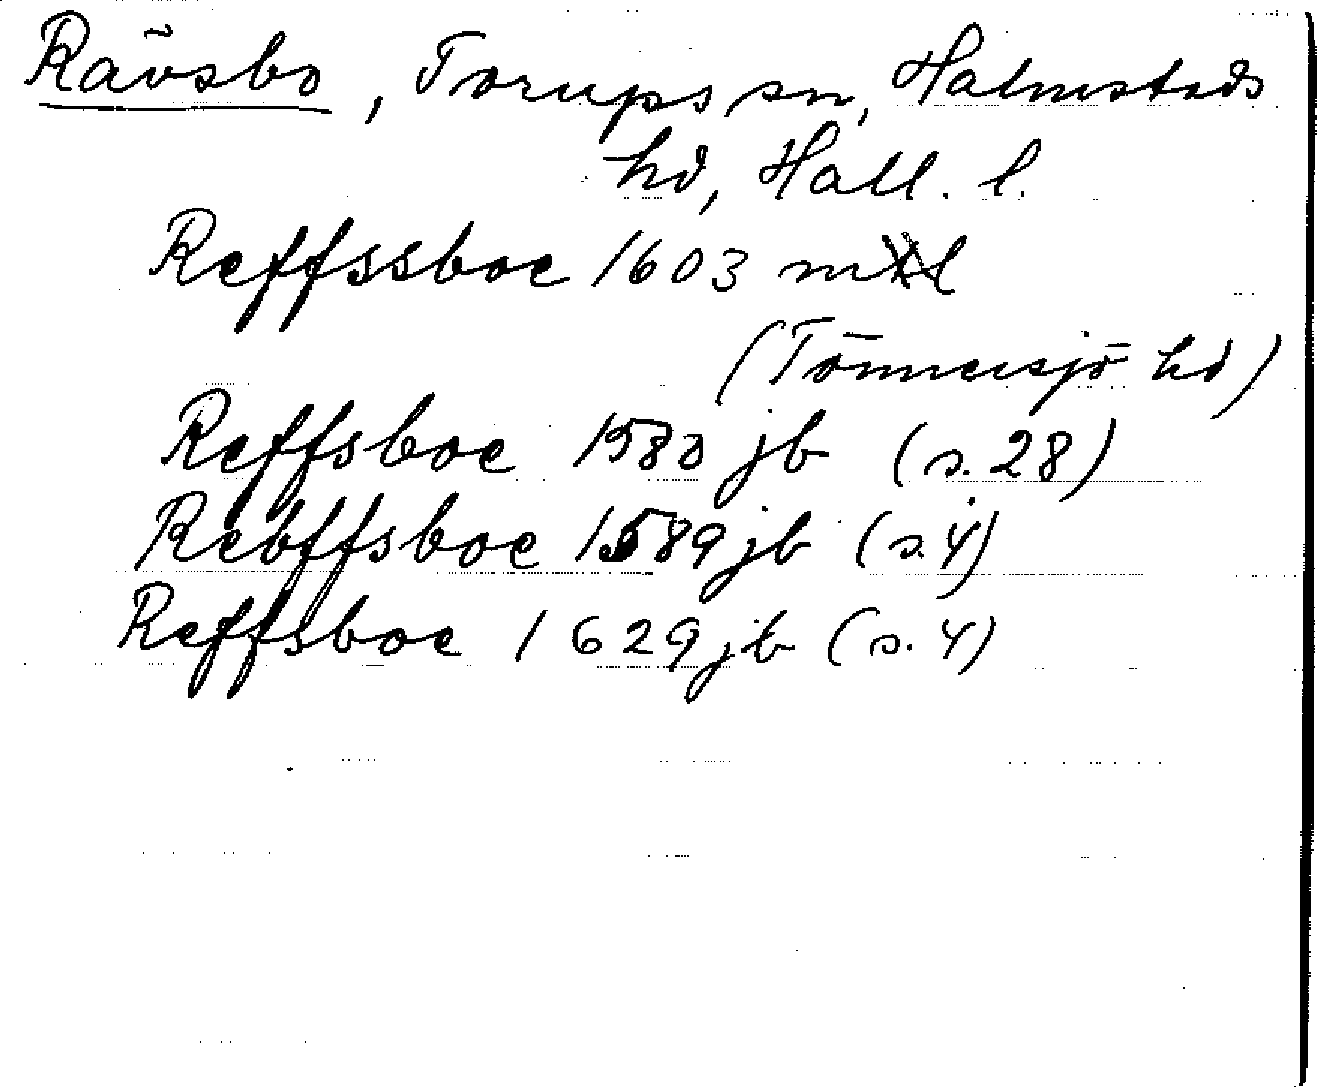 Rävsbo, Torups sn, Halmstads
hd, Hall. l.
Reffssboe 1603 ml
(Tönnersjö hd)
Reffsboe 1580 jb (s. 28)
Rebffsboe 1589 jb (s. 4)
Reffsboe 1629 jb (s. 4)